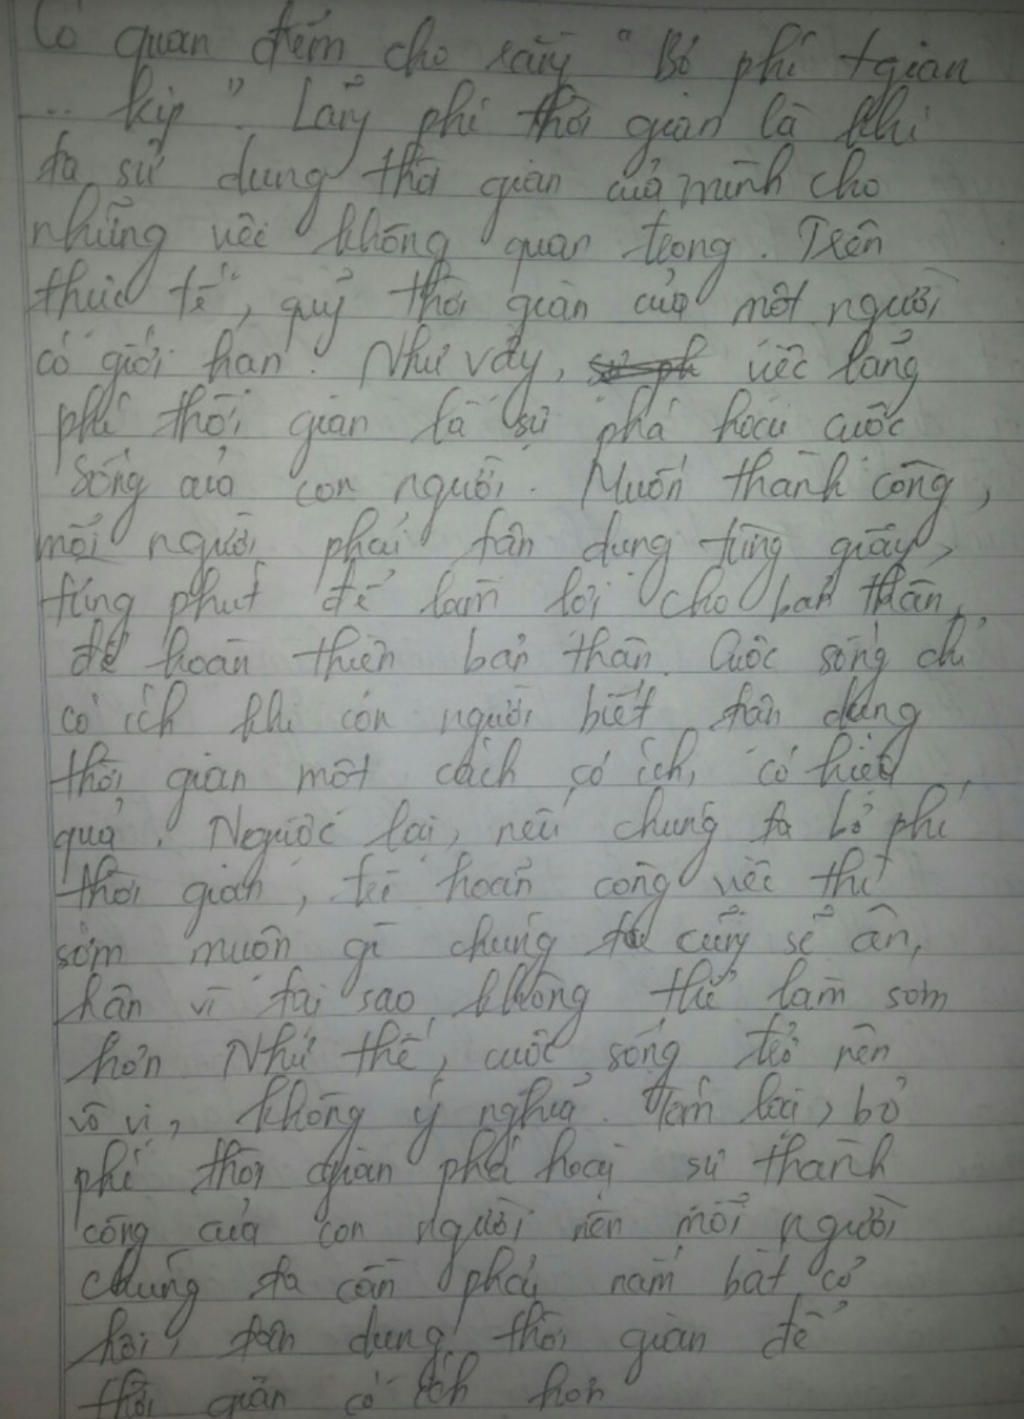 Có quan điểm cho rằng "Bỏ phí tgian
... kịp". Lãng phí thời gian là khi
ta sử dụng thời gian của mình cho
những việc không quan trọng. Trên
thực tế, quỹ thời gian của một người
có giới hạn. Như vậy, việc lãng
phí thời gian là sự phá hoại cuộc
sống của con người. Muốn thành công,
mỗi người phải tận dụng từng giây,
từng phút để làm lợi cho bản thân,
để hoàn thiện bản thân. Cuộc sống chỉ
có ích khi con người biết tận dụng
thời gian một cách có ích, có hiệu
quả. Ngược lại, nếu chúng ta bỏ phí
thời gian, trì hoãn công việc thì
sớm muộn gì chúng ta cũng sẽ ân
hận vì tại sao không thể làm sớm
hơn. Như thế, cuộc sống trở nên
vô vị, không ý nghĩa. Tóm lại, bỏ
phí thời gian phá hoại sự thành
công của con người nên mỗi người
chúng ta cần phải nắm bắt cơ
hội, tận dụng thời gian để
thời gian có ích hơn